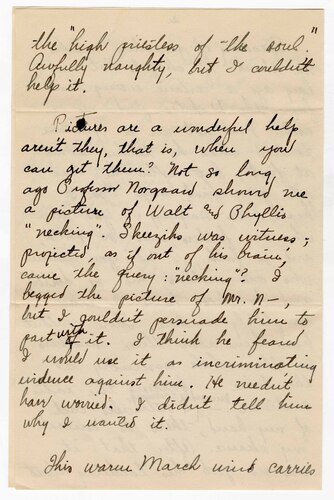 the "high priestess of the soul."
Awfully naughty, but I couldn't
help it.
Pictures are a wonderful help
aren't they, that is, when you
can get them? Not so long
ago Professor Norgaard showed me
a picture of Walt and Phyllis
"necking". Skeeziks was witness;
projected, as if out of his brain,
came the query: "necking"? I
begged the picture of Mr. N—,
but I couldn't persuade him to
part with it. I think he feared
I would use it as incriminating
evidence against him. He needn't
have worried. I didn't tell him
why I wanted it.
This warm March wind carries